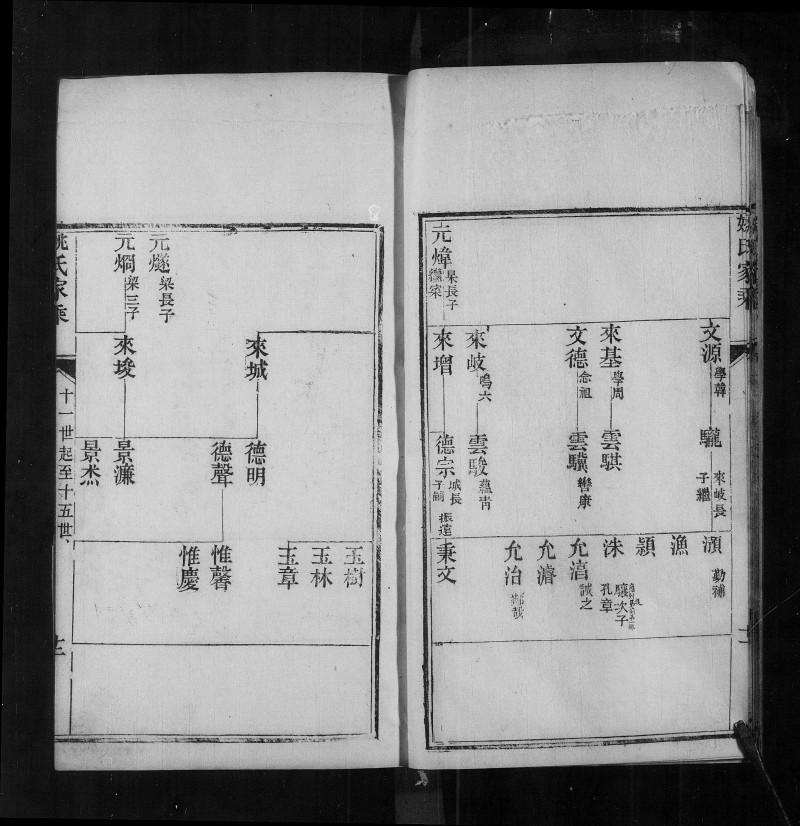 姚氏家乘
文源 學韓
驪 來岐長子繼
須 勤補
漁
潁
洙 驤次子 孔章
來基 學周
雲騏
文德 念祖
雲驥 轡康
允湻 誠之
允濬
允治
來岐 鳴六
雲駿 蘊青
元煒 杲長子 繼棨
來增
德宗 城長子嗣 振遠
秉文
十二
元燧 梁長子
元烱 梁三子
來城
德明
玉樹
玉林
玉章
德聲
惟馨
惟慶
來埈
景濂
景杰
姚氏家乘
十一世起至十五世、
十三